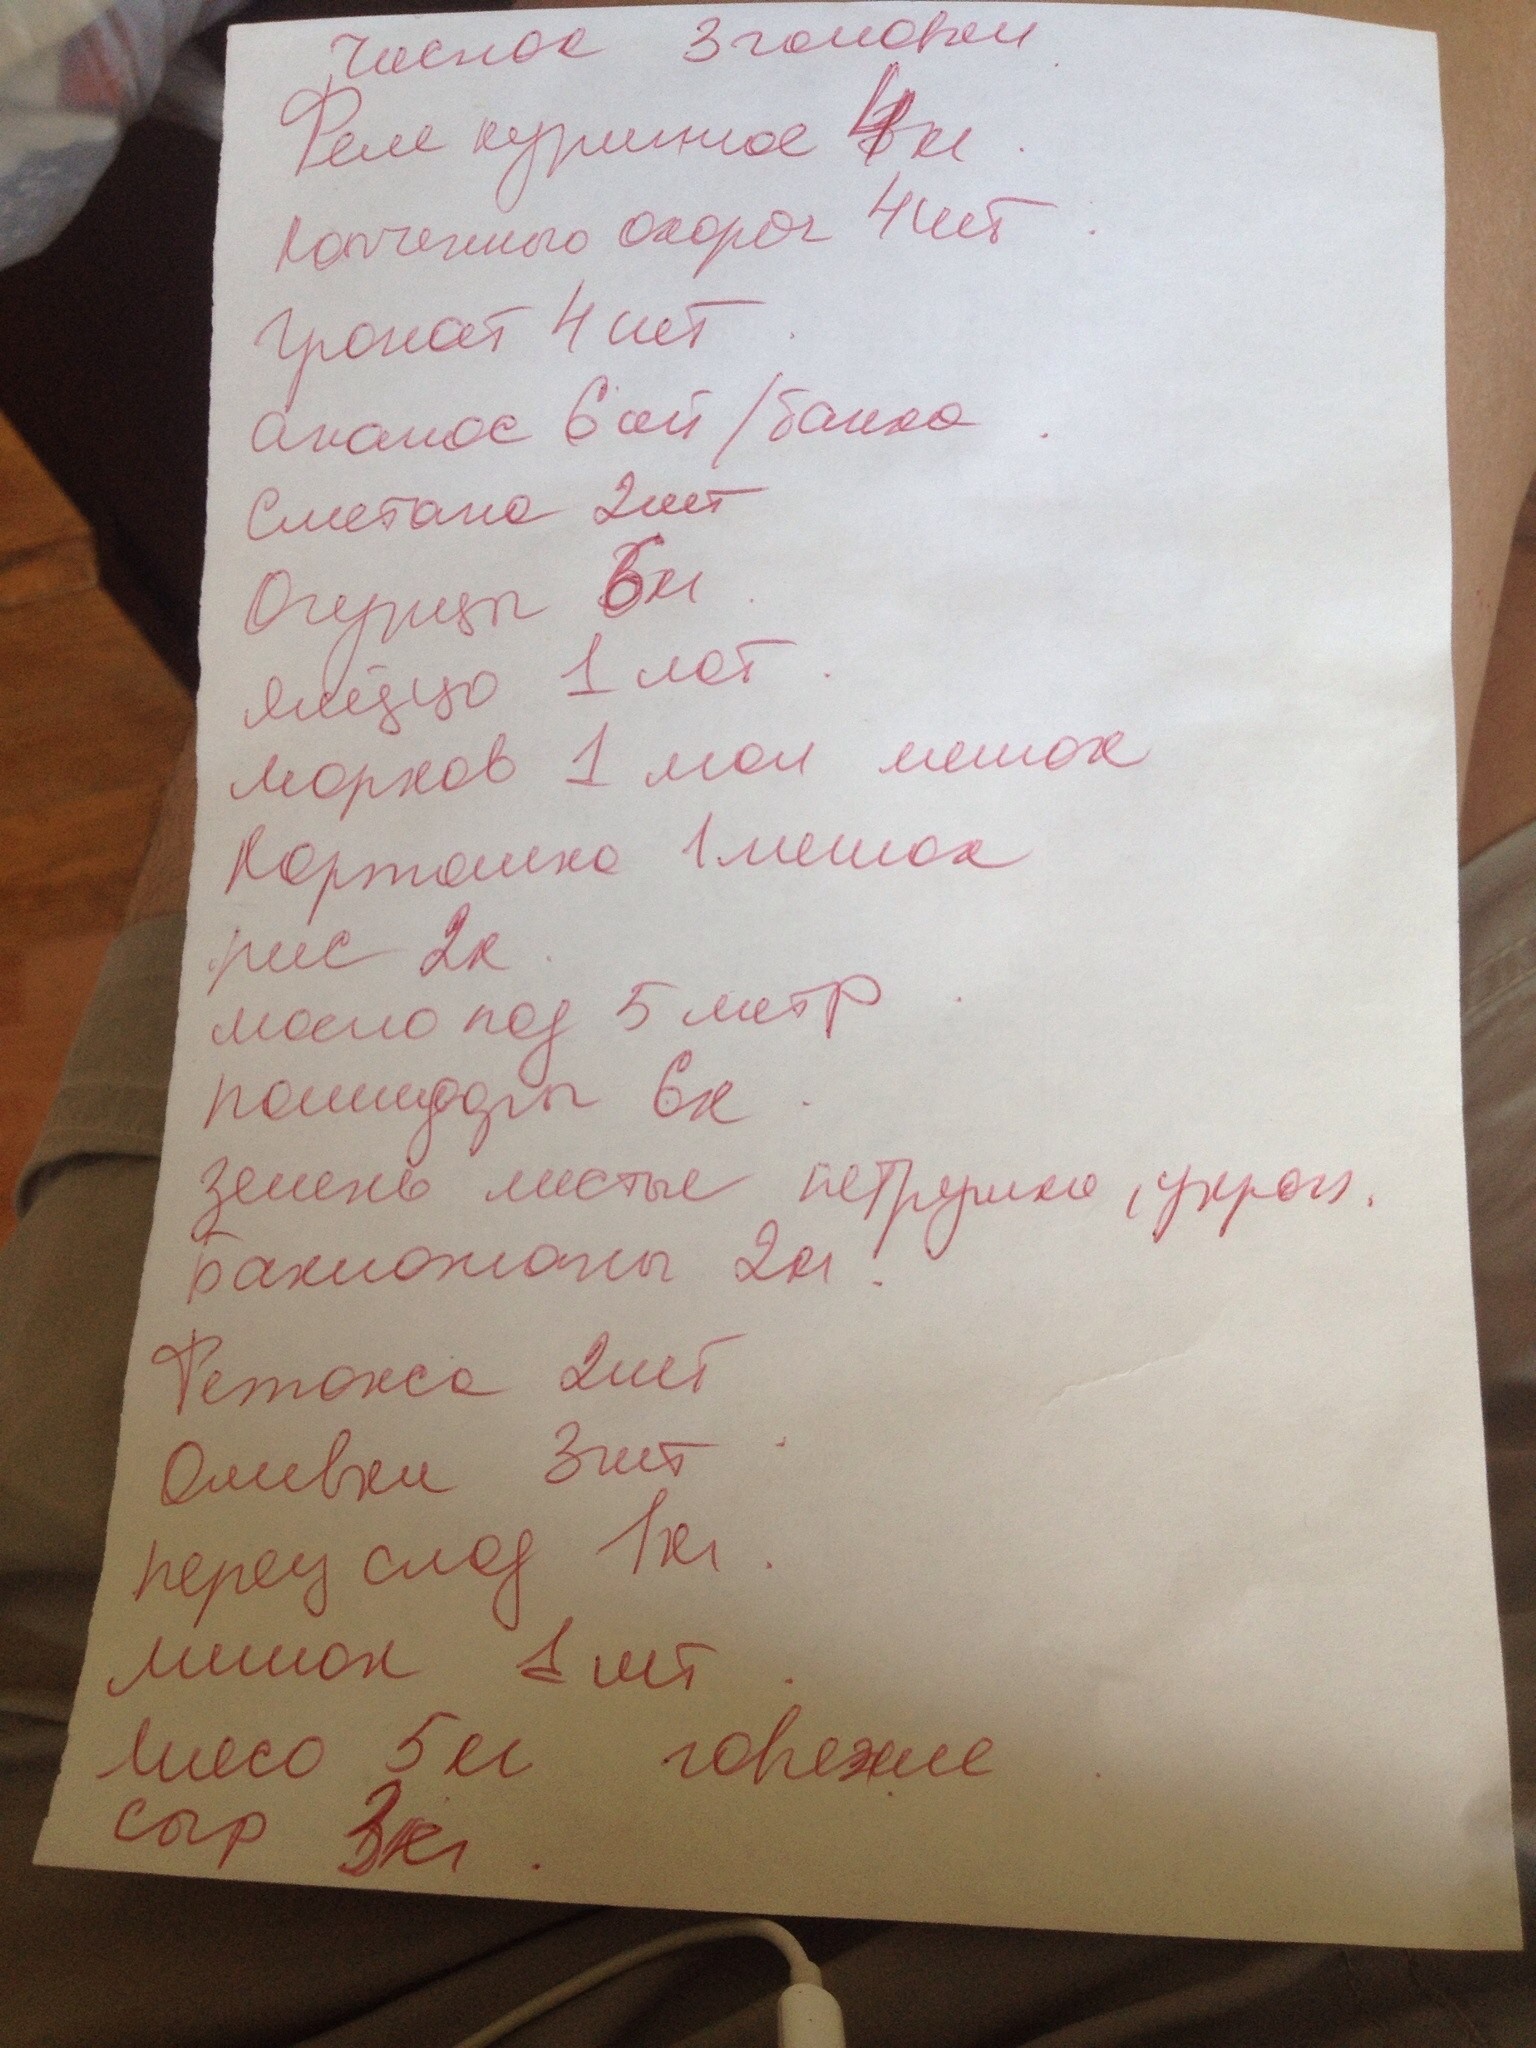 Чеснок 3 головки
Филе куриное 4 кг.
Копченного окорог 4 шт.
Гранат 4 шт.
Ананас 6 шт /банка.
Сметана 2 шт
Огурцы 6 кг.
Яйцо 1 лот.
Морков 1 мал мешок
Картошка 1 мешок
рис 2к.
масло под 5 метр.
Помидоры 6к.
Зелень листые петрушка, укроп.
Баклажаны 2 кг.
Фетакса 2 шт
Оливки 3 шт.
Перец слад 1 кг.
Мишок 1 шт.
Мясо 5 кг говежие.
Сыр кг.